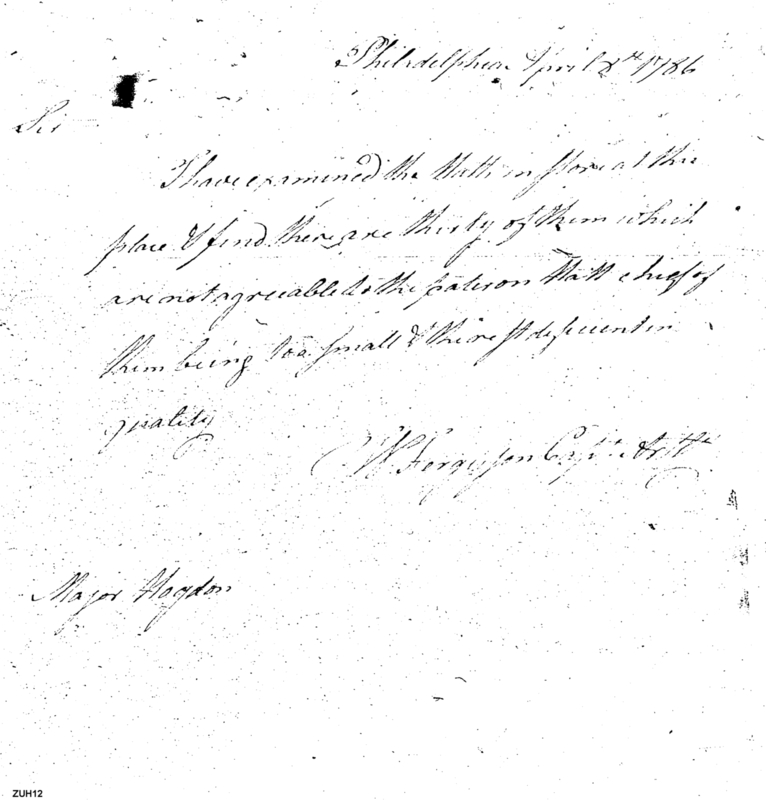 Philidelphia April 8th 1786
Sir
I have examined the Hatts in store at this
place & find there are thirty of them which
are not agreeable to the patron Hatt chief of
them being too small & the rest deficient in
quality
W Ferguson Capt. Artil
Major Hogdon
ZUH12